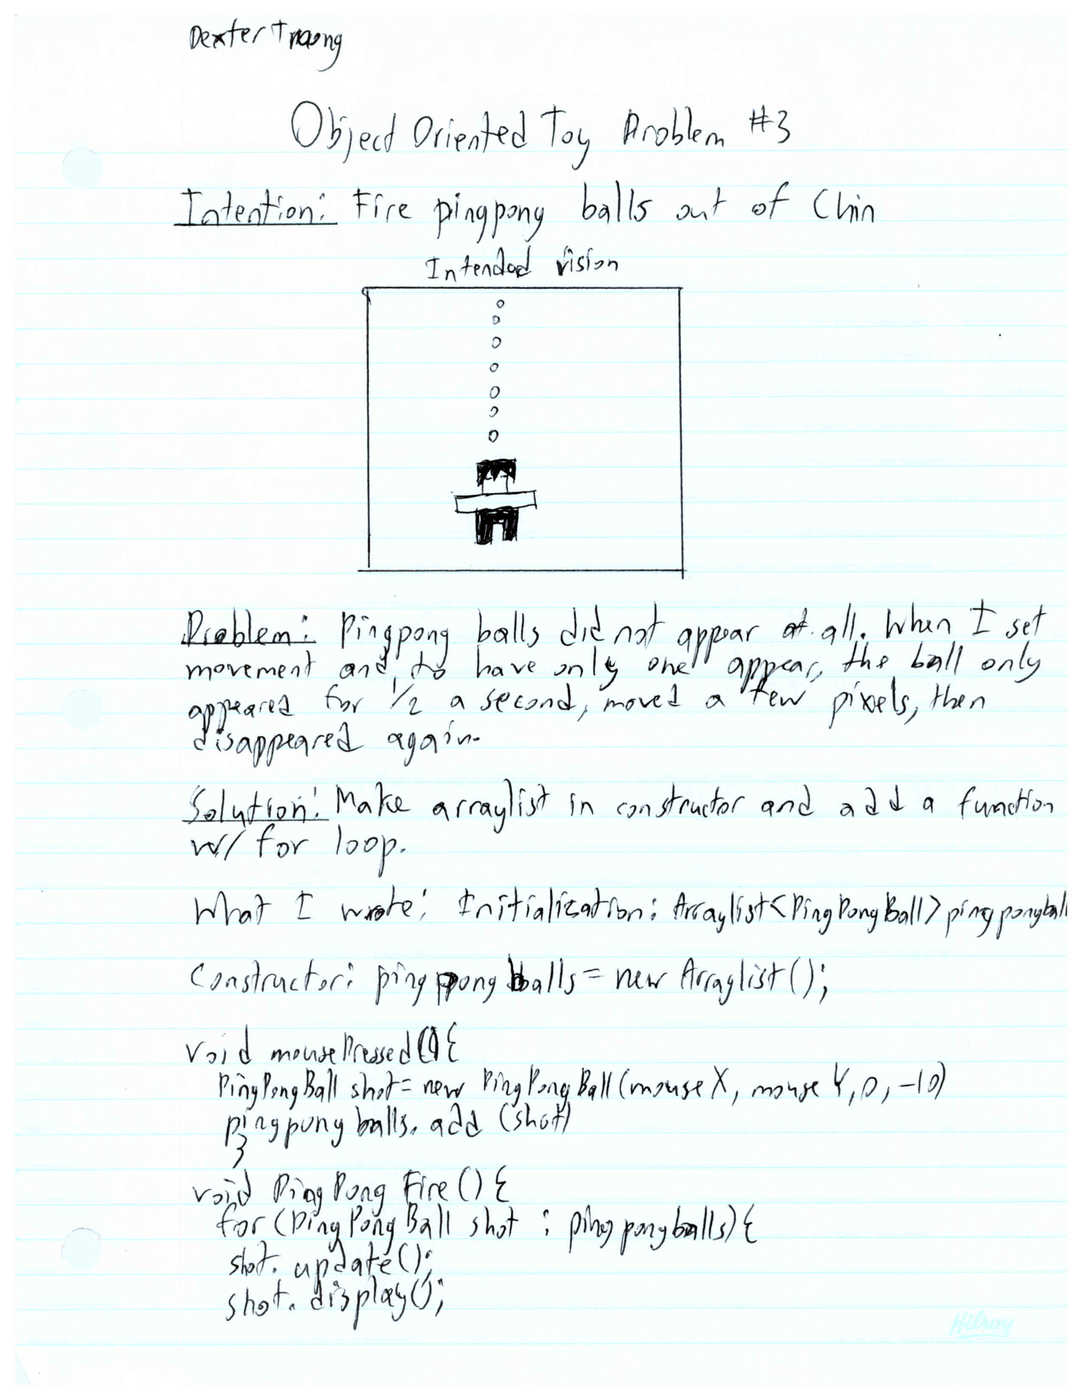 Dexter Truong
Object Oriented Toy Problem #3
Intention: Fire pingpong balls out of Chin
Intended vision
Problem: Pingpong balls did not appear at all. When I set
movement and to have only one appear, the ball only
appeared for 1/2 a second, moved a few pixels, then
disappeared again.
Solution: Make arraylist in constructor and add a function
w/ for loop.
What I wrote: Initialization: Arraylist<PingPongBall> pingpongball
Constructor: pingpong balls = new Arraylist();
void mousePressed(){
PingPongBall shot = new PingPongBall(mouseX, mouseY, 0, -10)
pingpong balls. add (shot)
}
void PingPong Fire () {
for (PingPongBall shot : pingpongballs) {
shot. update();
shot. display();
Hilroy